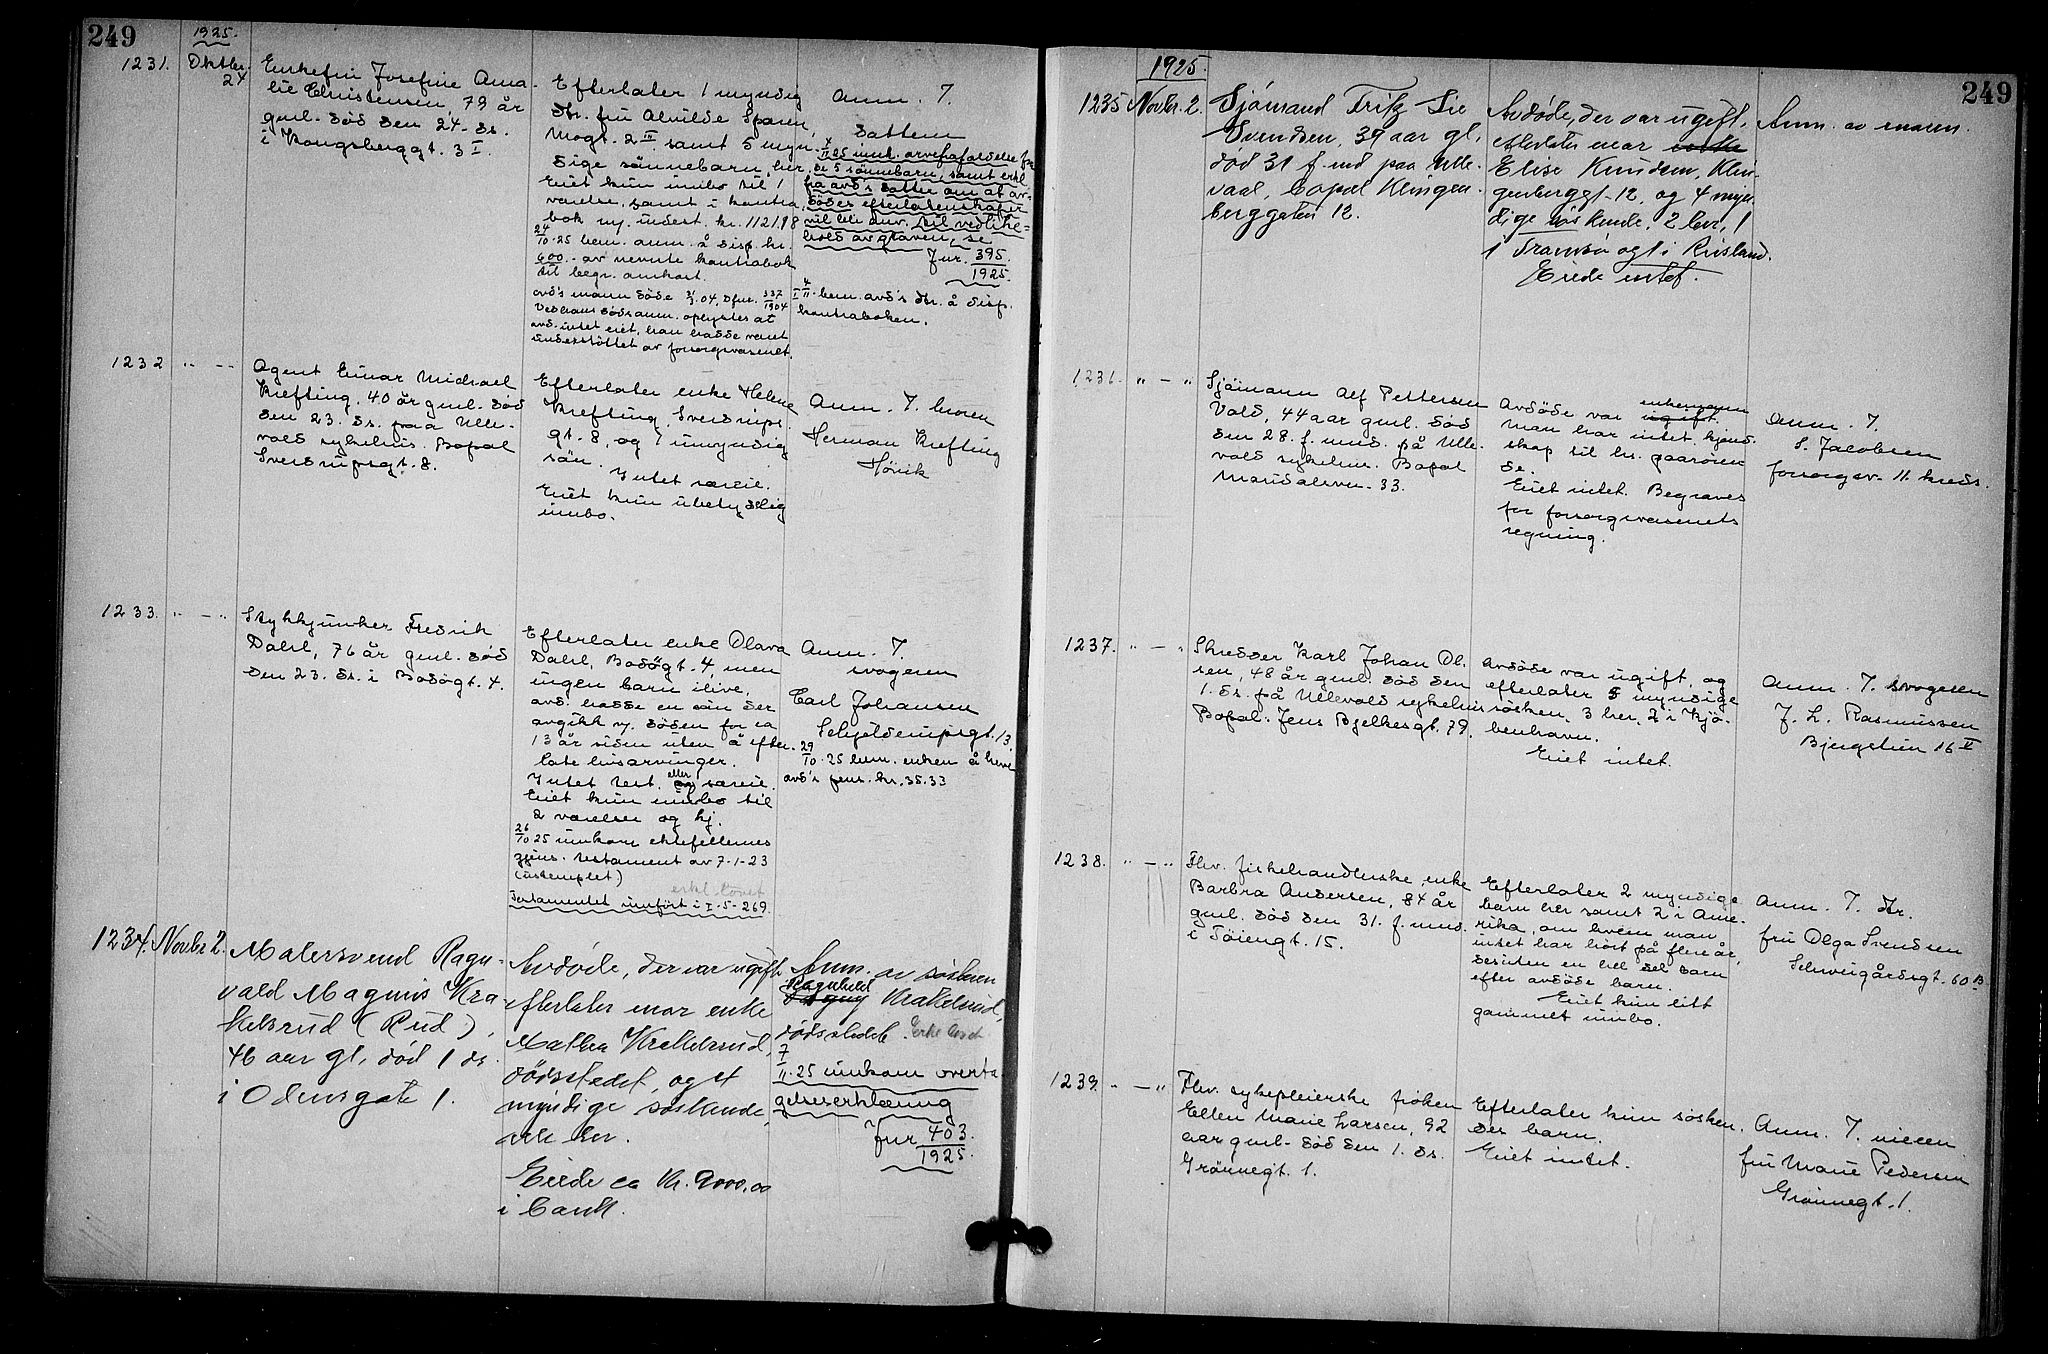 249
1925.
1231. Oktbr. 24
Enkefru Josefine Ama-
lie Christensen, 79 år
gml. död den 24. ds.
i Kongsberggt. 3 I
Efterlater 1 myndig
dtr. fru Alvilde
Mogt. 2 III samt 5 myn-
dige sönnebarn, her.
Eiet kun innbo til 1
værelse, samt i kontra-
bok ny. indest. kr. 1121,98
24/10-25 bem. anm. å disp. kr.
600.- av nevnte kontrabok
til begr. omkost.
avd's mann döde 31/3.04, Dfnr. 337/1904
Ved hans dödsanm. oplystes at
avd. intet eiet, han hadde været
understöttet av forsorgsvæsenet.
Anm. J.
datteren
11-25 innk. arvefrafaldelse fra
de 5 sönnebarn, samt erkl.
fra avd's datter om at av-
dödes efterlatenskaper
vil bli anv. til vedlike-
hold av graven, se
Jnr. 395/1925
4/11- bem. avd's dtr. å disp.
kontraboken.
1232 " - -
Agent Einar Michael
Krefting, 40 år gml. död
den 23. ds. paa Ulle-
vold sykehus. Bopal
Sverdrupsgt. 8.
Efterlater enke Helene
Krefting, Sverdrups-
gt. 8, og 1 umyndig
sön.
Intet særeie.
Eiet kun ubetydelig
innbo.
Anm. J. broren
Herman Krefting
Hövik
1233. " - "
Stykkjunker Fredrik
Dahl, 76 år gml. död
den 23. ds. i Bodögt. 4.
Efterlater enke Olava
Dahl, Bodögt. 4, men
ingen barn ilive.
avd. hadde en sön der
avgikk v. döden for ca
13 år siden uten å efter-
late livsarvinger.
Intet test. eller særeie.
Eiet kun innbo til
2 værelser og kj.
26/10 25 innkom ektefellernes
gjens. testament av 7-1-23
(ustemplet)
erkl. lovet
Testamentet innfört i I-5-269.
Anm. J.
svogeren
Carl Johansen
Schjeldrupsgt. 13.
29/10-25 bem. enken å heve
avd's pens. kr. 35.33
1234. Novbr 2.
Malersvend Ragn-
vald Magnus Kra-
kelsrud (Rud),
46 aar gl, död 1 ds
i Odensgate 1.
Avdöde, der var ugift
efterlater mor enke
Mathea Krakelsrud,
dödsstedet, og et
myndige söskende,
alle her.
Eiede ca Kr. 9000,00
i bank.
Anm. av sösteren
Ragnhild Krakelsrud,
dödsstedet.
7/11-25 innkom overta-
gelseserklæring
Jnr 403/1925.
249
1925.
1235 Novbr. 2.
Sjömand Fritz Lie
Svendsen, 39 aar gl.
död 31 f. md paa Ulle-
vaal, bopæl Klingen-
berggaten 12.
Avdöde, der var ugift,
efterlater mor enke
Elise Knudsen, Klin-
genberggt. 12, og 4 myn-
dige söskende, 2 her, 1
i Tromsö og 1 i Rusland.
Eiede intet.
Anm. av moren.
1236. " - "
Sjömann Alf Pettersen
Vold, 44 aar gml. död
den 28. f. mnd. på Ulle-
volds sykehus. Bopal
Maridalsvn. 33.
Avdöde var enkemann ugift.
Man har intet kjend-
skap til hs. paarören-
de.
Eiet intet. Begraves
for forsorgsvæsenets
regning.
Anm. J.
S. Jacobsen
forsorgsv. 11. kreds.
1237. " - "
Skredder Karl Johan Ol-
sen, 48 år gml. död den
1. ds. på Ullevolds sykehus
Bopal: Jens Bjelkesgt. 79.
Avdöde var ugift, og
efterlater 5 myndige
söskен, 3 her, 2 i Kjö-
benhavn.
Eiet intet.
Anm. J. svogeren
J. L. Rasmussen
Bjergstien 16 V
1238. " - "
Fhv. fiskehandlerske, enke
Barbra Andersen, 84 år
gml. död den 31. f. mnd.
i Töiengt. 15.
Efterlater 2 myndige
barn her samt 2 i Ame-
rika, om hvem man
intet har hört på flere år,
desuten en hel del barn
efter avdöde barn.
Eiet kun litt
gammelt innbo.
Anm. J. dtr.
fru Olga Svendsen
Schweigårdsgt. 60 B
1239. " - "
Fhv. sykepleierske fröken
Ellen Marie Larsen, 92
aar gml. död den 1. ds.
Grönnegt. 1.
Efterlater kun sösken-
der barn.
Eiet intet.
Anm. J. niecen
fru Marie Pedersen
Grönnegt. 1.